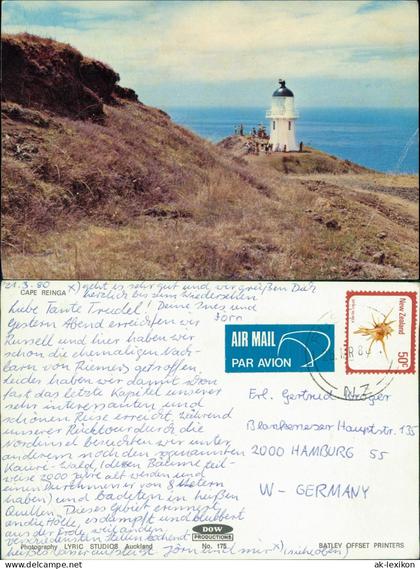 21.3.80
CAPE REINGA
x) geht es sehr gut und wir grüßen Dich
herzlich bis zum Wiedersehen
Deine Ines und
Jörn
Liebe Tante Trudel!
gestern Abend erreichten wir
Russell und hier haben wir
schon die ehemaligen Nach-
barn von Riemers getroffen
Leider haben wir damit schon
fast das letzte Kapitel unserer
sehr interessanten und
schönen Reise erreicht. Während
unserer Rücktour durch die
Nordinsel besuchten wir unter
anderem noch den sogenannten
Kauri-Wald, (dessen Bäume teil-
weise 2000 Jahre alt werden und
einen Durchmesser von 8 Metern
haben) und badeten in heißen
Quellen. Dieses Gebiet erinnert
an die Hölle, es dampft und blubbert
aus der Erde, wie an den
verschiedensten Stellen kochend
heißes Wasser austritt. Jörn und mir x) (siehe oben)
AIR MAIL
PAR AVION
New Zealand
50c
NZ
Erl. Gertrud
Blankeneser Hauptstr. 135
2000 HAMBURG 55
W-GERMANY
Photography LYRIC STUDIOS Auckland
DOW
PRODUCTIONS
No. 175
BATLEY OFFSET PRINTERS
ak-lexikon.de